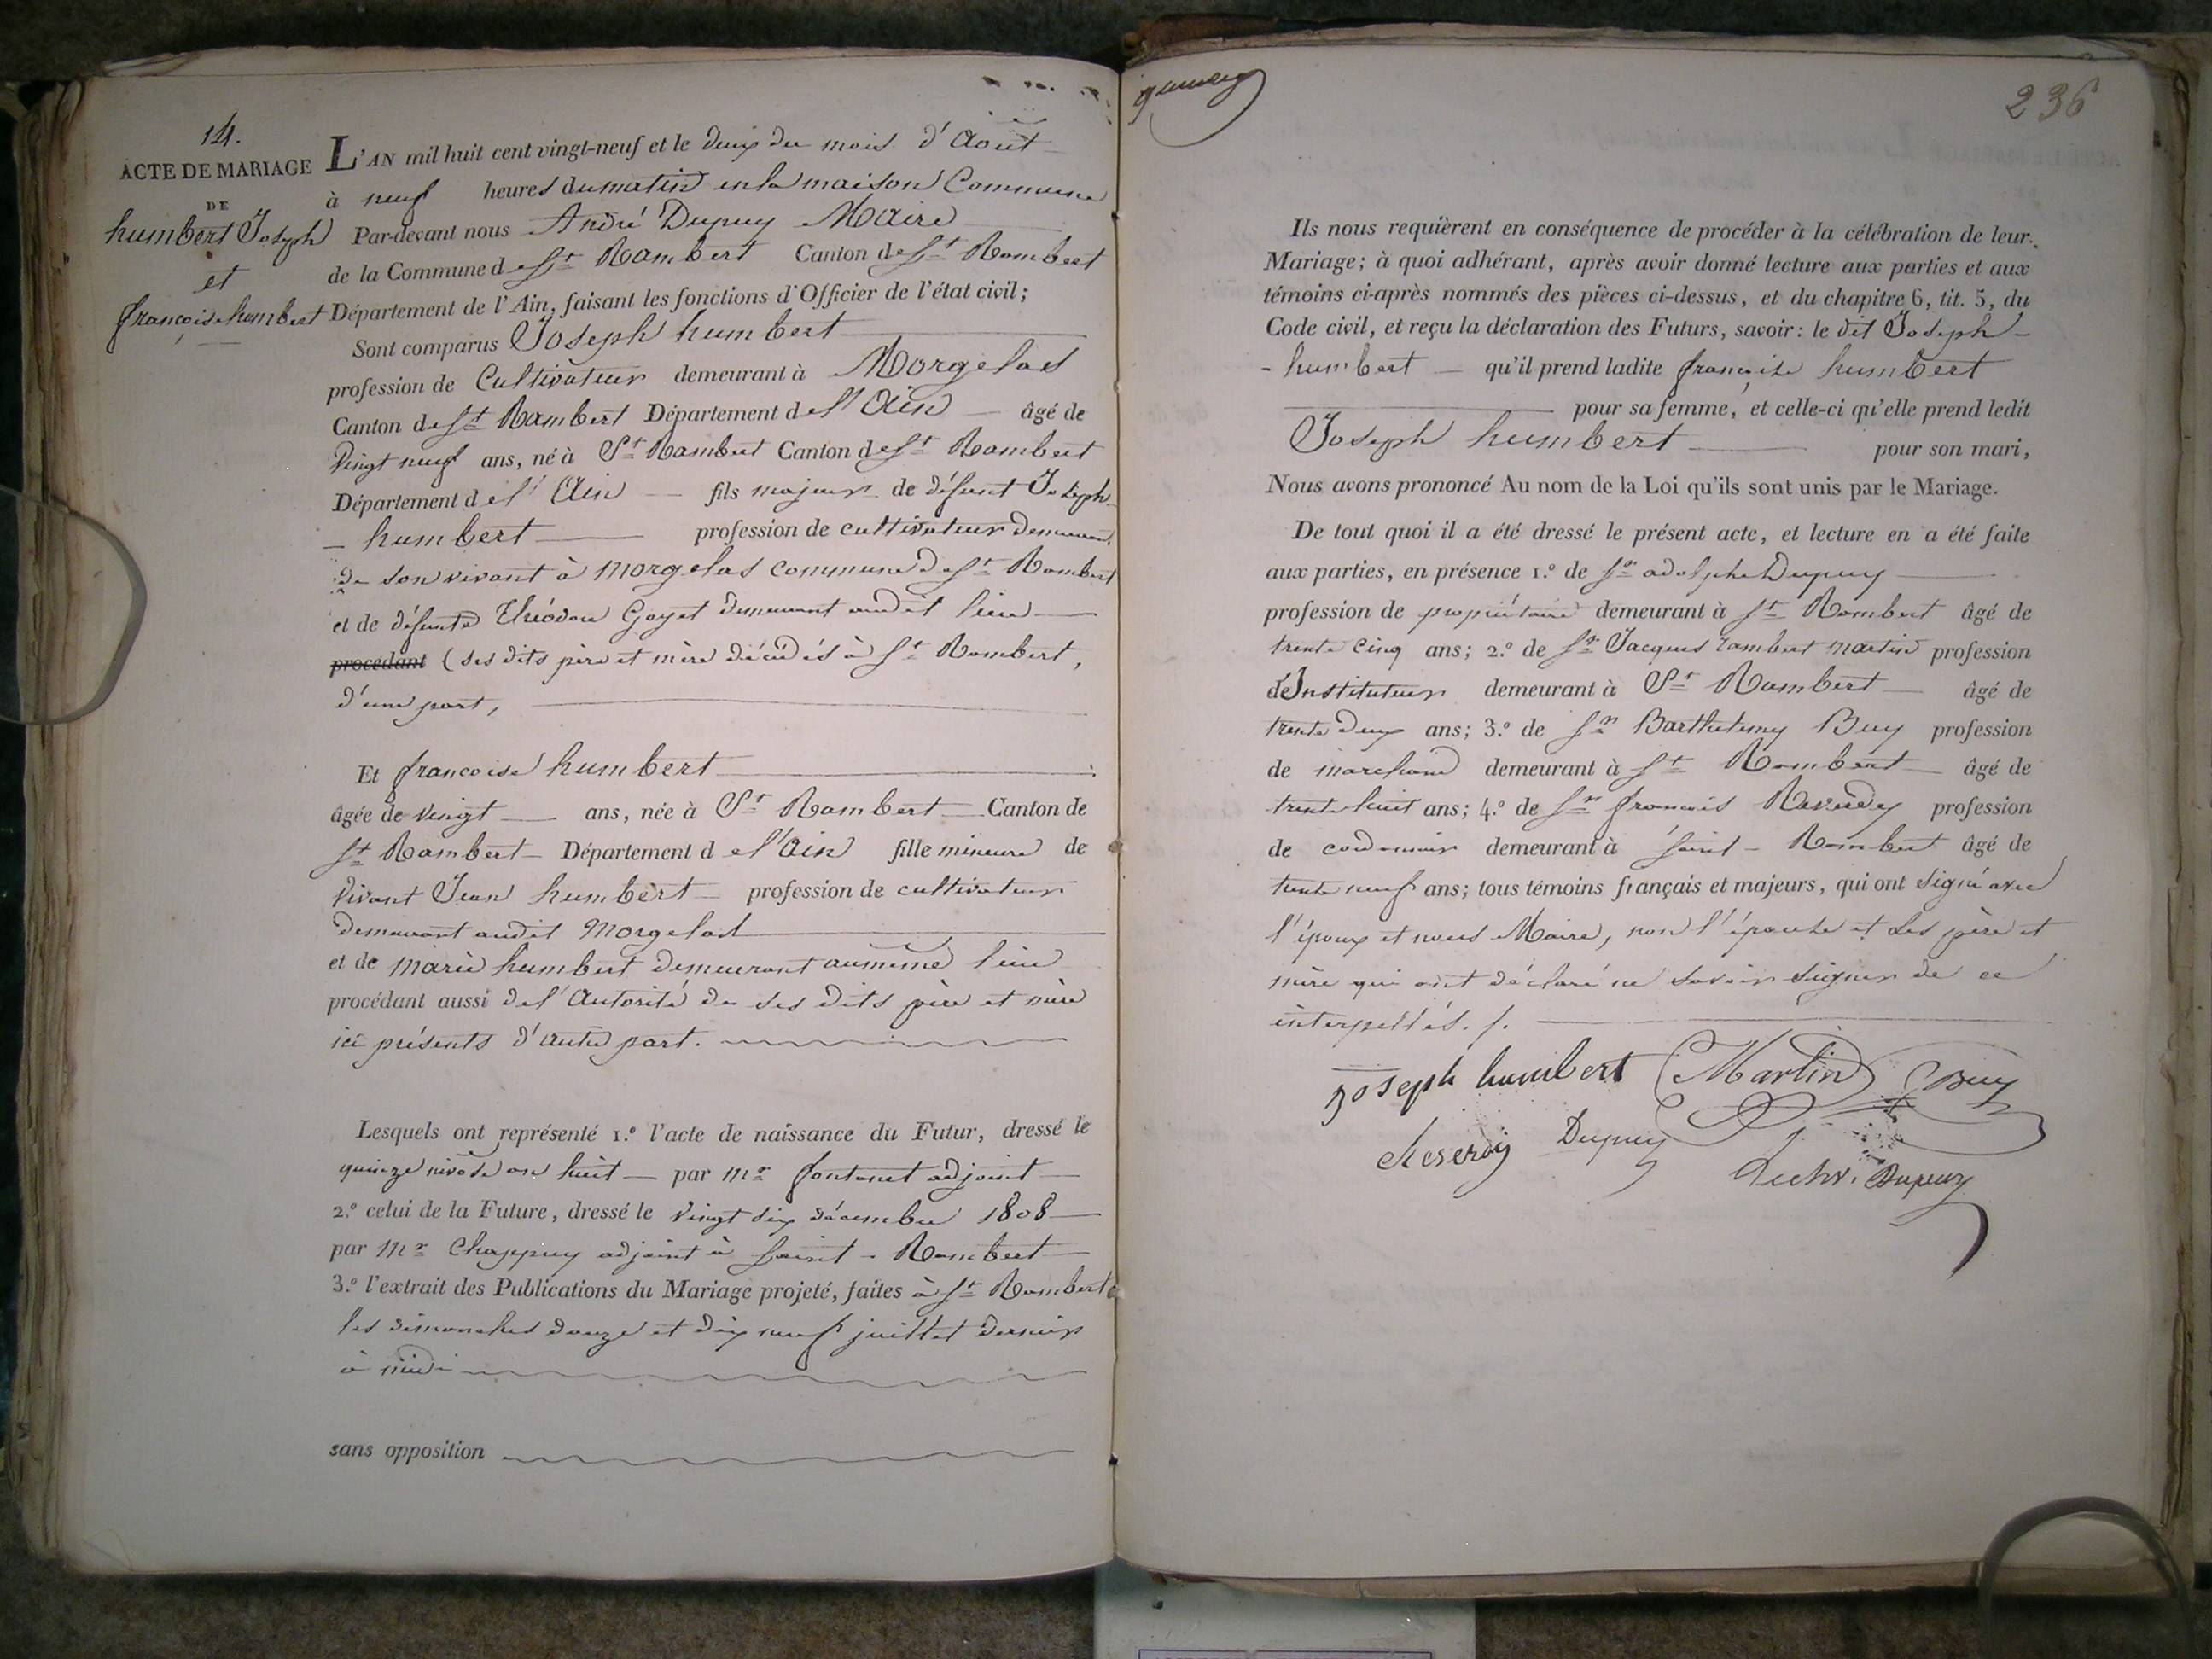 14.
ACTE DE MARIAGE
DE
humbert Joseph
et
françoise humbert
L'AN mil huit cent vingt-neuf et le deux du mois d'Août
à neuf heures du matin en la maison Commune
Par-devant nous André Dupuy Maire
de la Commune de St Rambert Canton de St Rambert
Département de l'Ain, faisant les fonctions d'Officier de l'état civil;
Sont comparus Joseph humbert
profession de Cultivateur demeurant à Morgelas
Canton de St Rambert Département de l'Ain âgé de
Vingt neuf ans, né à St Rambert Canton de St Rambert
Département de l'Ain fils majeur de défunt Joseph
humbert profession de cultivateur demeurant
de son vivant à Morgelas commune de St Rambert
et de défunte Théodore Goyet demeurant audit lieu
procédant (ses dits père et mère décédés à St Rambert,
d'une part,
Et francoise humbert
âgée de Vingt ans, née à St Rambert Canton de
St Rambert Département de l'Ain fille mineure de
Vivant Jean humbert profession de cultivateur
demeurant audit Morgelas
et de marie humbert demeurant au même lieu
procédant aussi de l'Autorité de ses dits père et mère
ici présents d'autre part.
Lesquels ont représenté 1.º l'acte de naissance du Futur, dressé le
quinze nivose an huit par Mr fontanet adjoint
2.º celui de la Future, dressé le Vingt six décembre 1808
par Mr Chappuy adjoint à Saint-Rambert
3.º l'extrait des Publications du Mariage projeté, faites à St Rambert
les dimanches douze et dix neuf juillet dernier
à midi
sans opposition
236
Ils nous requièrent en conséquence de procéder à la célébration de leur
Mariage; à quoi adhérant, après avoir donné lecture aux parties et aux
témoins ci-après nommés des pièces ci-dessus, et du chapitre 6, tit. 5, du
Code civil, et reçu la déclaration des Futurs, savoir: le dit Joseph
humbert qu'il prend ladite françoise humbert
pour sa femme, et celle-ci qu'elle prend ledit
Joseph humbert pour son mari,
Nous avons prononcé Au nom de la Loi qu'ils sont unis par le Mariage.
De tout quoi il a été dressé le présent acte, et lecture en a été faite
aux parties, en présence 1.º de Sr adolphe Dupuy
profession de propriétaire demeurant à St Rambert âgé de
trente cinq ans; 2.º de Sr Jacques rambert Martin profession
de Instituteur demeurant à St Rambert âgé de
trente deux ans; 3.º de Sr Barthelemy Buy profession
de marchand demeurant à St Rambert âgé de
trente huit ans; 4.º de Sr francois Reverdy profession
de cordonnier demeurant à Saint-Rambert âgé de
trente neuf ans; tous témoins français et majeurs, qui ont signé avec
l'époux et nous Maire, non l'épouse et les père et
mère qui ont déclaré ne savoir signer de ce
interpellés.
Joseph humbert Martin Buy
Dupuy
Dupuy